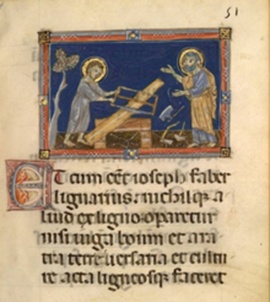 51
Et cum eēt ioseph faber
lignarius. nichilq; a
liud ex ligno oparetur
nisi iuga boum et ara
tra terre uersaria et cultu
re acta ligneosq; faceret